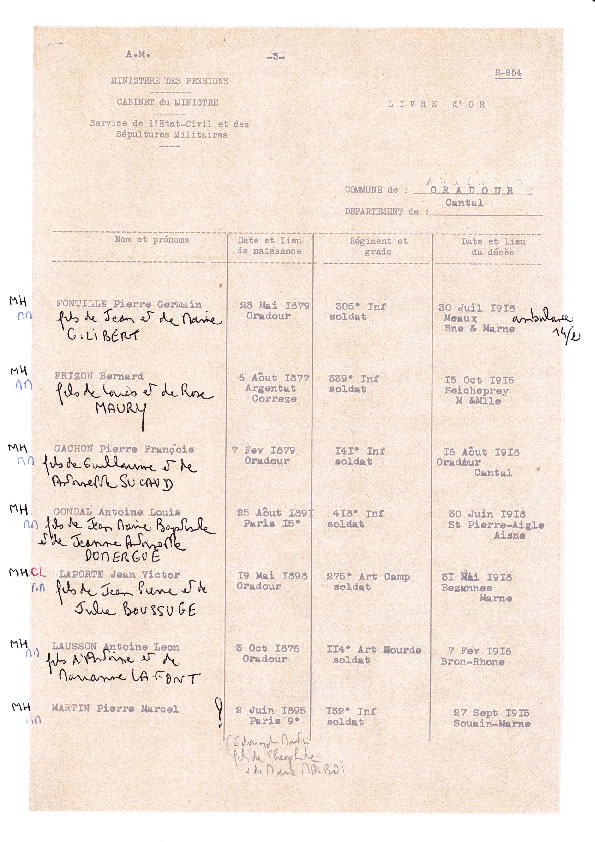 A.M. -3- R-854
MINISTERE DES PENSIONS
CABINET du MINISTRE
LIVRE d'OR
Service de l'Etat-Civil et des
Sépultures Militaires
COMMUNE de : ORADOUR
Cantal
DEPARTEMENT de :
Nom et prénoms Date et lieu de naissance Régiment et grade Date et lieu du décès
MH FONTILLE Pierre Germain 28 Mai 1879 305° Inf 30 Juil 1918
fils de Jean et de Marie Oradour soldat Meaux ambulance
GILIBERT Sne & Marne 14/2
MH FRIZON Bernard 5 Aôut 1877 339° Inf 15 Oct 1915
fils de Louis et de Rose Argentat soldat Seicheprey
MAURY Correze M &Mlle
MH GACHON Pierre François 7 Fev 1879 141° Inf 15 Aôut 1918
fils de Guillaume et de Oradour soldat Oradour
Antoinette SUCAUD Cantal
MH GONDAL Antoine Louis 25 Aôut 1891 418° Inf 30 Juin 1918
fils de Jean Marie Baptiste Paris 15° soldat St Pierre-Aigle
et de Jeanne Antoinette Aisne
DOMERGUE
MH CL LAPORTE Jean Victor 19 Mai 1898 275° Art Camp 31 Mai 1918
fils de Jean Pierre et de Oradour soldat Bezannes
Julie BOUSSUGE Marne
MH LAUSSON Antoine Leon 3 Oct 1876 114° Art Lourde 7 Fev 1918
fils d'Antoine et de Oradour soldat Bron-Rhone
Marianne LAFONT
MH MARTIN Pierre Marcel ? 2 Juin 1895 132° Inf 27 Sept 1915
Paris 9° soldat Souain-Marne
fils de Theophile
et de Marie